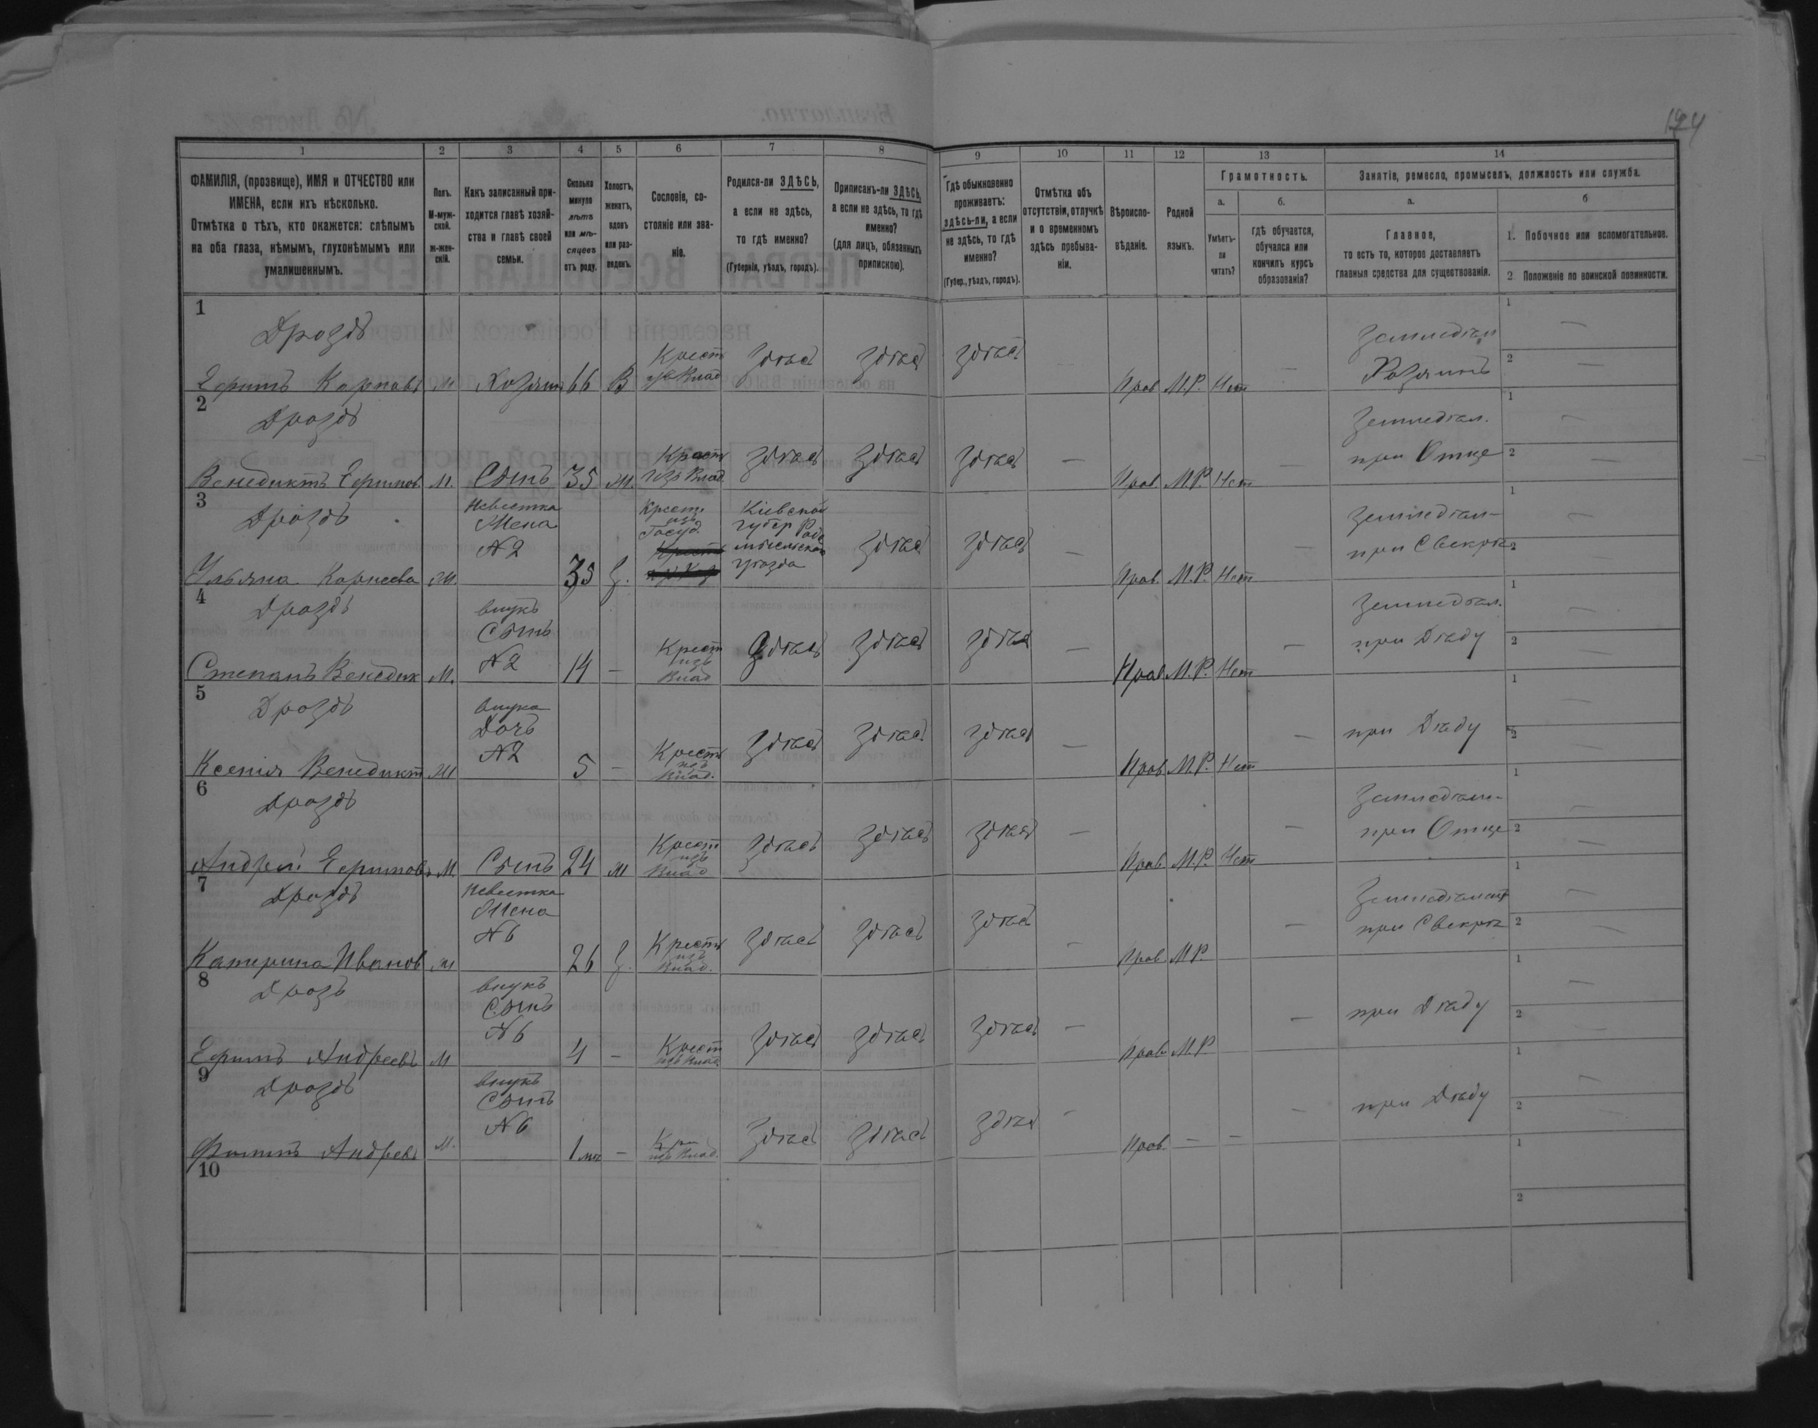 124
1 2 3 4 5 6 7 8 9 10 11 12 13 14
ФАМИЛІЯ, (прозвище), ИМЯ и ОТЧЕСТВО или
ИМЕНА, если ихъ нѣсколько.
Отмѣтка о тѣхъ, кто окажется: слѣпымъ
на оба глаза, нѣмымъ, глухонѣмымъ или
умалишеннымъ.
Полъ.
М-муж-
ской.
ж-жен-
скій.
Какъ записанный при-
ходится главѣ хозяй-
ства и главѣ своей
семьи.
Сколько
минуло
лѣтъ
или мѣ-
сяцевъ
отъ роду.
Холостъ,
женатъ,
вдовъ
или раз-
веденъ.
Сословіе, со-
стояніе или зва-
ніе.
Родился-ли ЗДѢСЬ,
а если не здѣсь,
то гдѣ именно?
(Губернія, уѣздъ, городъ).
Приписанъ-ли ЗДѢСЬ,
а если не здѣсь, то гдѣ
именно?
(для лицъ, обязанныхъ
припискою).
Гдѣ обыкновенно
проживаетъ:
здѣсь-ли, а если
не здѣсь, то гдѣ
именно?
(Губер., уѣздъ, городъ).
Отмѣтка объ
отсутствіи, отлучкѣ
и о временномъ
здѣсь пребыва-
ніи.
Вѣроиспо-
вѣданіе.
Родной
языкъ.
Грамотность.
а.
Умѣетъ-
ли
читать?
б.
гдѣ обучается,
обучался или
кончилъ курсъ
образованія?
Занятіе, ремесло, промыселъ, должность или служба.
а.
Главное,
то есть то, которое доставляетъ
главныя средства для существованія.
б
1. Побочное или вспомогательное.
2 Положеніе по воинской повинности.
1
Дроздъ
Ефимъ Карповъ М Хозяинъ 66 В Крест изъ Влад Здѣсь Здѣсь Здѣсь Прав М.Р. Нет Земледѣл Хозяинъ 1 — 2 —
2
Дроздъ
Венедиктъ Ефимов М. Сынъ 35 Ж. Крест изъ Влад Здѣсь Здѣсь Здѣсь — Прав М.Р. Нет — Земледѣл. при Отце 1 — 2 —
3
Дроздъ
Ульяна Корнеева Ж Невестка Жена №2 35 З. Крест. изъ Госуд Кіевской губер Радомысльскаго уѣзда Здѣсь Здѣсь — Прав. М.Р. Нет — Земледѣл— при Свекрѣ 1 — 2 —
4
Дроздъ
Степанъ Венедик М. внукъ Сынъ №2 14 — Крест изъ Влад Здѣсь Здѣсь Здѣсь — Прав. М.Р. Нет — Земледѣл. при Дѣду 1 — 2 —
5
Дроздъ
Ксенія Венедикт Ж внука Дочь №2 5 — Крест изъ Влад. Здѣсь Здѣсь Здѣсь — Прав М.Р. Нет — при Дѣду 1 — 2 —
6
Дроздъ
Андрей Ефимовъ М. Сынъ 24 Ж Крест изъ Влад Здѣсь Здѣсь Здѣсь — Прав. М.Р. Нет — Земледѣл— при Отце 1 — 2 —
7
Дроздъ
Катерина Иванов Ж Невестка Жена №6 26 З. Крест изъ Влад. Здѣсь Здѣсь Здѣсь — Прав М.Р. — при Свекрѣ 1 — 2 —
8
Дрозъ
Ефимъ Андреевъ М внукъ Сынъ №6 4 — Крест изъ Влад Здѣсь Здѣсь Здѣсь — Прав. М.Р. — при Дѣду 1 — 2 —
9
Дроздъ
Филипъ Андревъ М. внукъ Сынъ №6 1 мц — Кре изъ Влад. Здѣсь Здѣсь Здѣсь — Прав. — — — при Дѣду 1 — 2 —
10
1
2